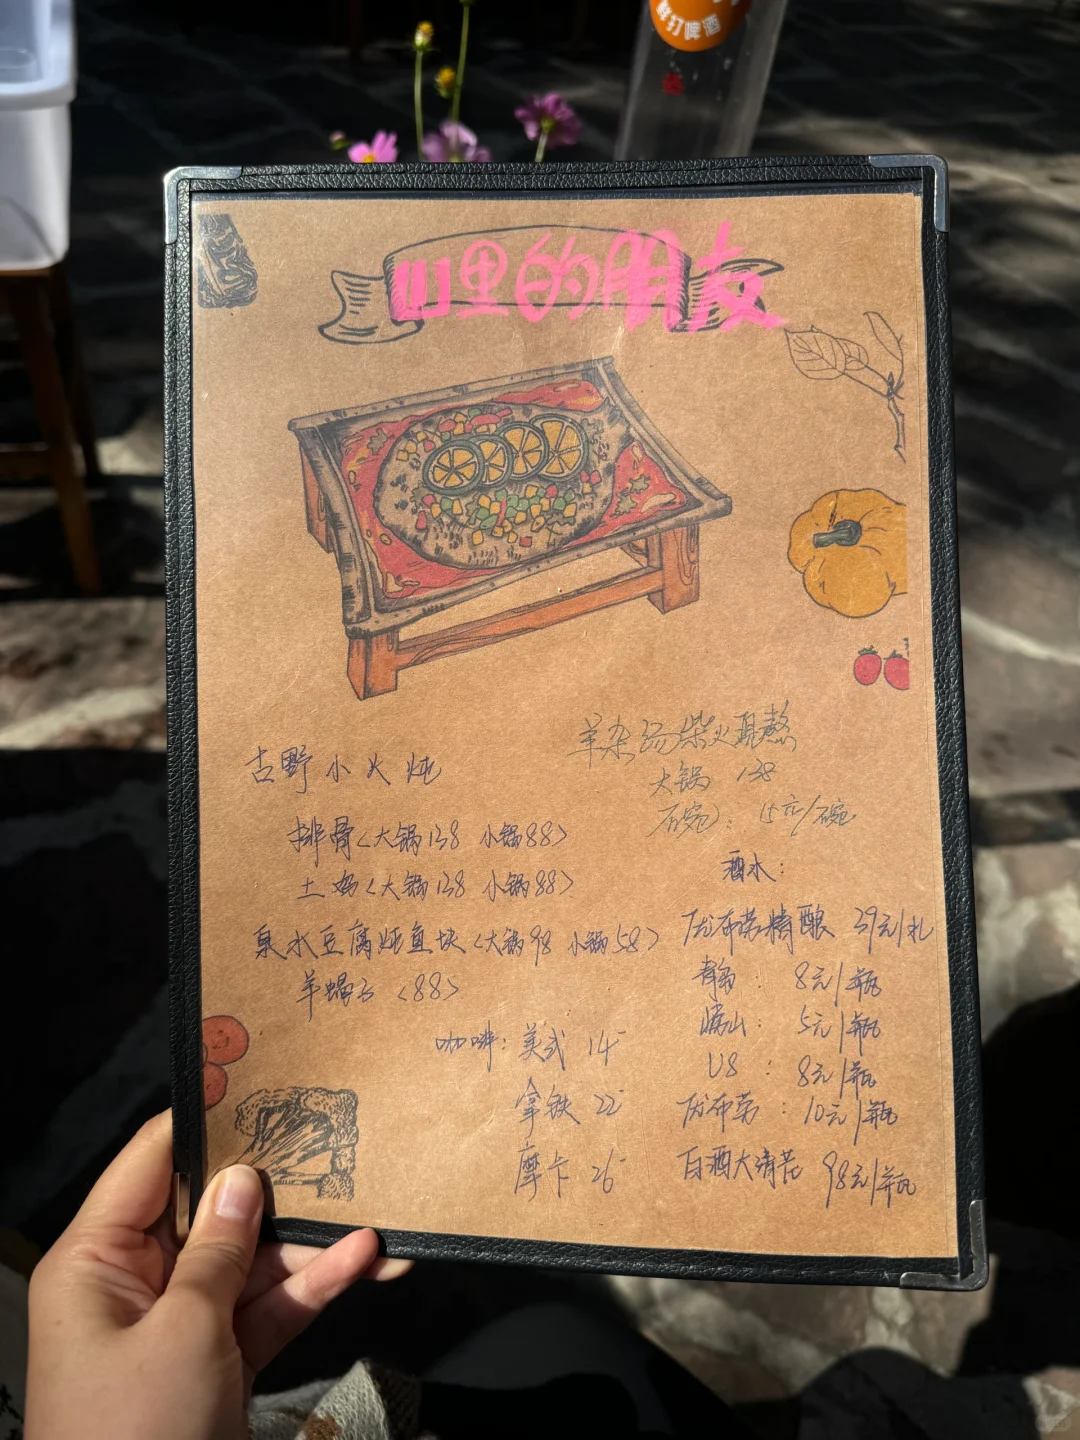 鲜打啤酒
山里的朋友
古野小火炖
排骨<大锅138 小锅88>
土鸡<大锅138 小锅88>
泉水豆腐炖鱼块<大锅98 小锅58>
羊蝎子<88>
咖啡: 美式 14
拿铁 22
摩卡 26
羊杂汤柴火现熬
大锅 138
碗: 15元/碗
酒水:
优布劳精酿 39元/扎
青岛: 8元/瓶
崂山: 5元/瓶
U8: 8元/瓶
优布劳: 10元/瓶
白酒大清花 98元/瓶